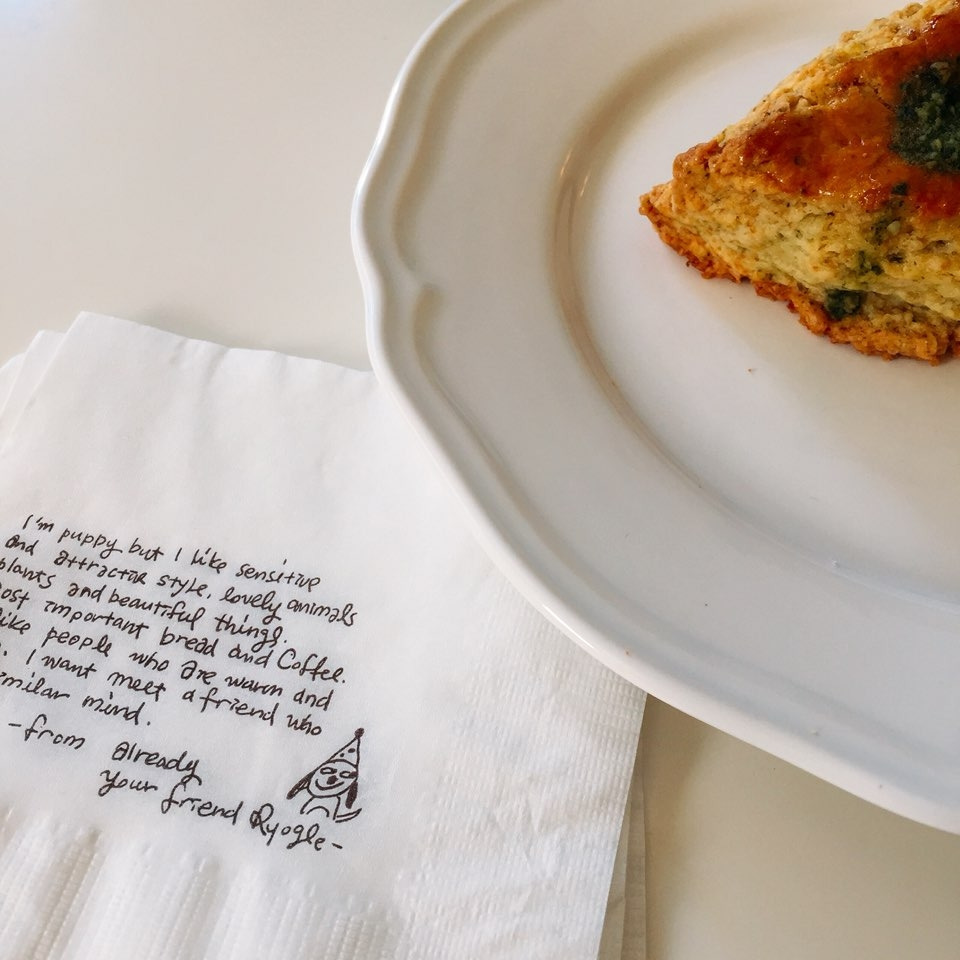 I'm puppy but I like sensitive
and attractor style, lovely animals
plants and beautiful things.
ost important bread and Coffee.
like people who are warm and
. I want meet a friend who
milar mind.
-from already
your friend Ryogle-